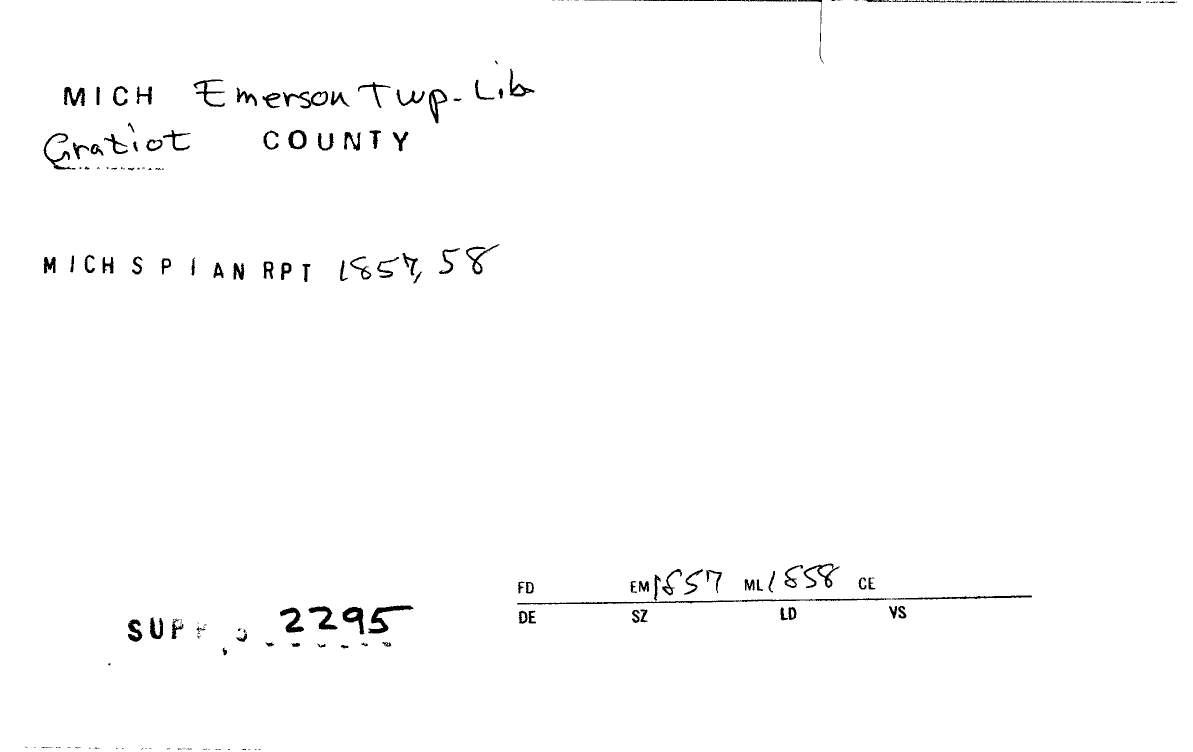 MICH Emerson Twp. Lib
Gratiot COUNTY
MICH S P I AN RPT 1857, 58
FD EM 1857 ML 1858 CE
DE SZ LD VS
2295